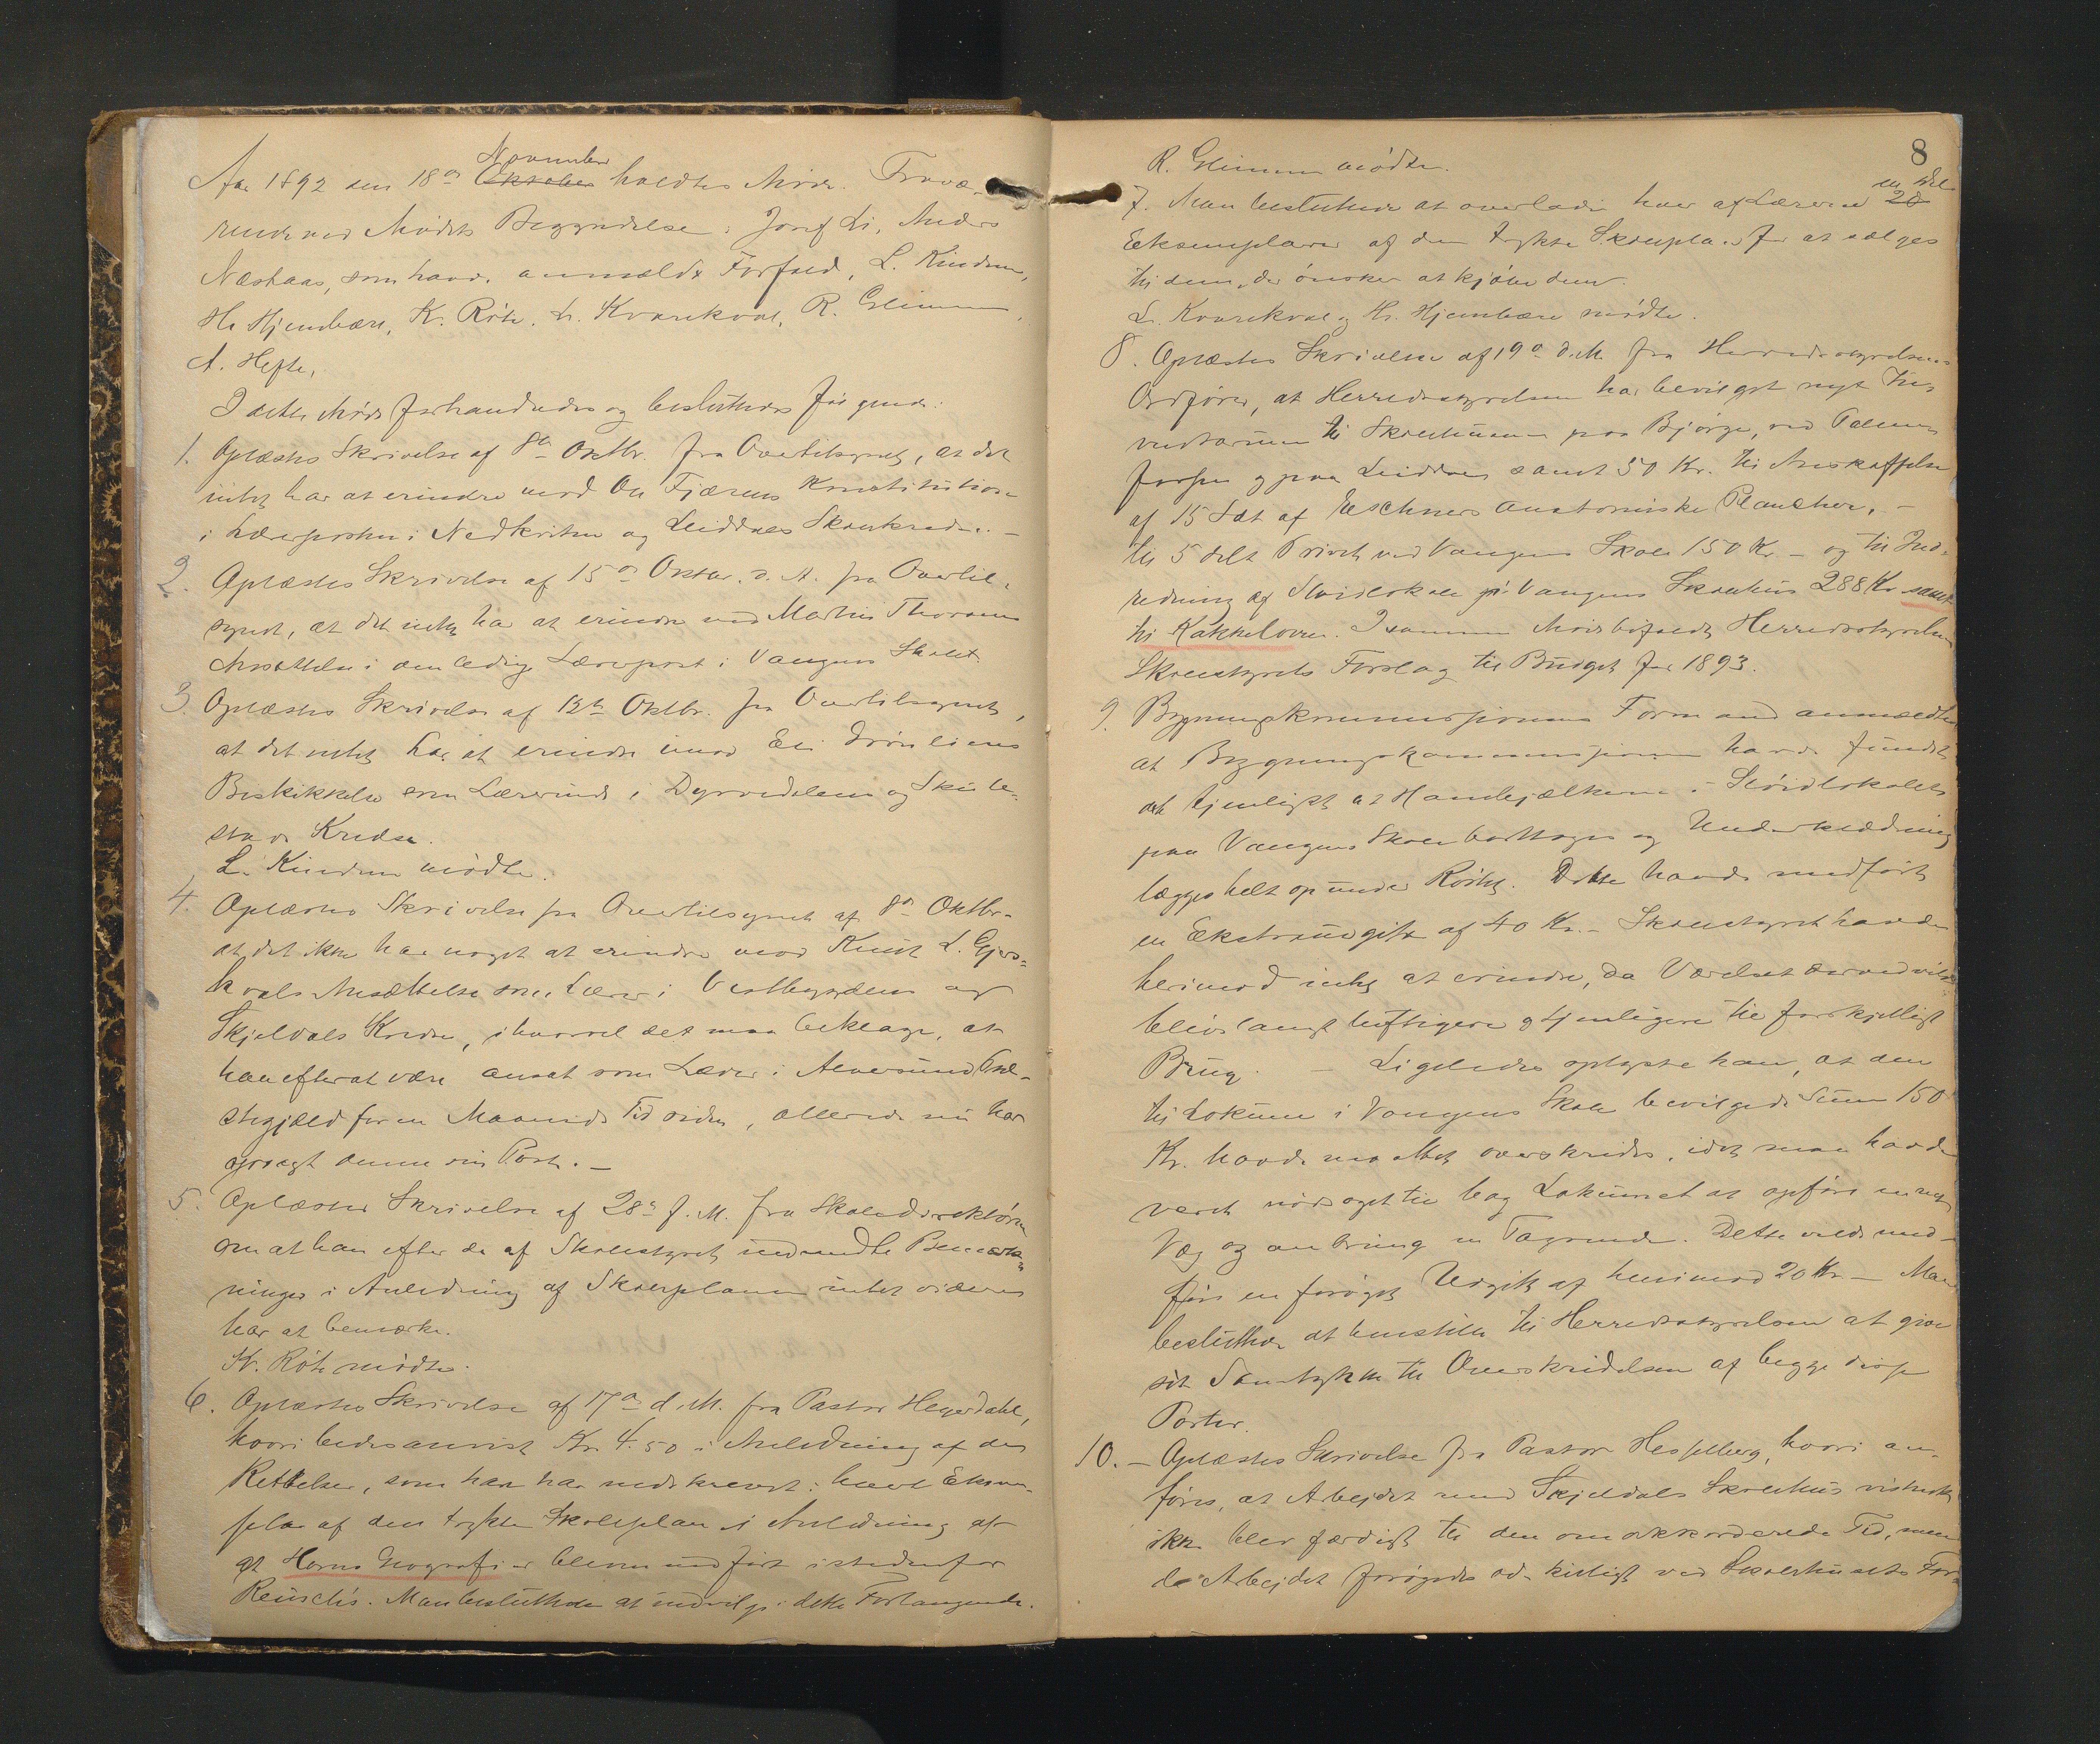 November
Aar 1892 den 18de Oktober holdtes Møde. Fravæ-
rende ved Mødets Begyndelse: Josef Li, Anders
Næshaas, som havde anmeldt Forfald, L. Kindem,
Hr Hjembære, K. Röte, L. Kvarekval, R. Glimme,
A. Hefte,
I dette Møde forhandledes og besluttedes følgende:
1. Oplæstes Skrivelse af 8de Oktbr. fra Overtilsynet, at det
intet har at erindre mod Ole Fjæreus Konstitution
i Lærerposten i Nedkvitne og Liddals Skolekredse. -
2. Oplæstes Skrivelse af 15de Oktbr. d. A. fra Overtil-
synet, at det intet har at erindre mod Martin Thorsens
Ansættelse i den ledige Lærerpost i Vangens Skole.
3. Oplæstes Skrivelse af 13de Oktbr. fra Overtilsynet,
at det intet har at erindre imod Eli
Beskikkelse som Lærerinde i Dyrvedalens og Skule-
stads Kredse.
L. Kindem mødte.
4. Oplæstes Skrivelse fra Overtilsynet af 8de Oktbr.
at det ikke har noget at erindre mod Knut L. Gjers-
kvals Ansættelse som Lærer i Vestbygdens og
Skjeldals Kredse, ihvorvel det maa beklage, at
han efter at være ansat som Lærer i Alversund Præ-
stegjæld for en Maaneds Tid siden, allerede nu har
opsagt denne sin Post. -
5. Oplæstes Skrivelse af 28de f. M. fra Skoledirektøren
om at han efter de af Skolestyret indsendte Bemærk-
ninger i Anledning af Skoleplanen intet videre
har at bemærke.
K. Röte mødte.
6. Oplæstes Skrivelse af 17de d. M. fra Pastor Heyerdahl,
hvori bedes anvist Kr. 4.50 i Anledning af de
Rettelser, som han har nedskrevet i hvert Eksem-
plar af den trykte Skoleplan i Anledning af
at Horns Geografi er bleven indført istedenfor
Reusch's. Man besluttede at indvilge i dette Forlangende.
8
R. Glimme mødte.
en Del
7. Man besluttede at overlade hver af Lærerne 20
Eksemplarer af den trykte Skoleplan for at sælges
til dem, der ønsker at kjøbe dem.
L. Kvarekval og Hr. Hjembære mødte.
8. Oplæstes Skrivelse af 19de d. M. fra Herredsstyrelsens
Ordfører, at Herredsstyrelsen har bevilget nyt In-
ventarium til Skolehusene paa Bjørge, ved Palme-
forsen og paa Liddal samt 50 Kr. til Anskaffelse
af 15 Sæt af Eschners anatomiske Plancher, -
til 5 delt Privet ved Vangens Skole 150 Kr - og til Ind-
redning af Sløidlokale på Vangens Skolehus 288 Kr samt
til Kakkelovn. I samme Møde bifaldt Herredsstyrelsen
Skolestyrets Forslag til Budget for 1893.
9. Bygningskommissionens Formand anmeldte
at Bygningskommissionen havde fundet
det tjenligst at Hanebjælkerne i Sløidlokalet
paa Vangens Skole borttoges og Underklædning
lægges helt op under Røstet. Dette havde medført
en Ekstraudgift af 40 Kr. - Skolestyret havde
herimod intet at erindre, da Værelset derved vilde
blive langt luftigere og tjenligere til forskjelligt
Brug. - Ligeledes oplyste han, at den
til Lokum i Vangens Skole bevilgede Sum 150
Kr. havde maattet overskrides, idet man havde
været nødsaget til bag Lokumet at opføre en ny
Væg og anbringe en Tagrende. Dette vilde med-
føre en forøget Udgift af henimod 20 Kr - Man
besluttede at henstille til Herredsstyrelsen at give
sit Samtykke til Overskridelsen af begge disse
Poster.
10. - Oplæstes Skrivelse fra Pastor Hesselberg, hvori an-
føres, at Arbeidet med Skjeldals Skolehus vistnok
ikke blev færdigt til den omakkorderede Tid, men
da Arbeidet forøgedes ved Skolehusets For-